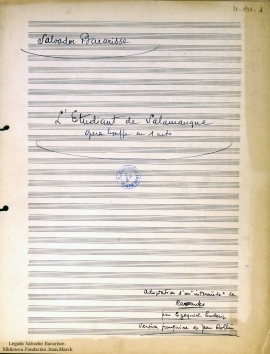 Salvador Bacarisse
L'Etudiant de Salamanque
opera bouffe en 1 acte
Adaptation d'un "intermède" de
Cervantes
par Ezequiel Enderiz
Version française de Jean Rollin
Legado Salvador Bacarisse.
Biblioteca Fundación Juan March.